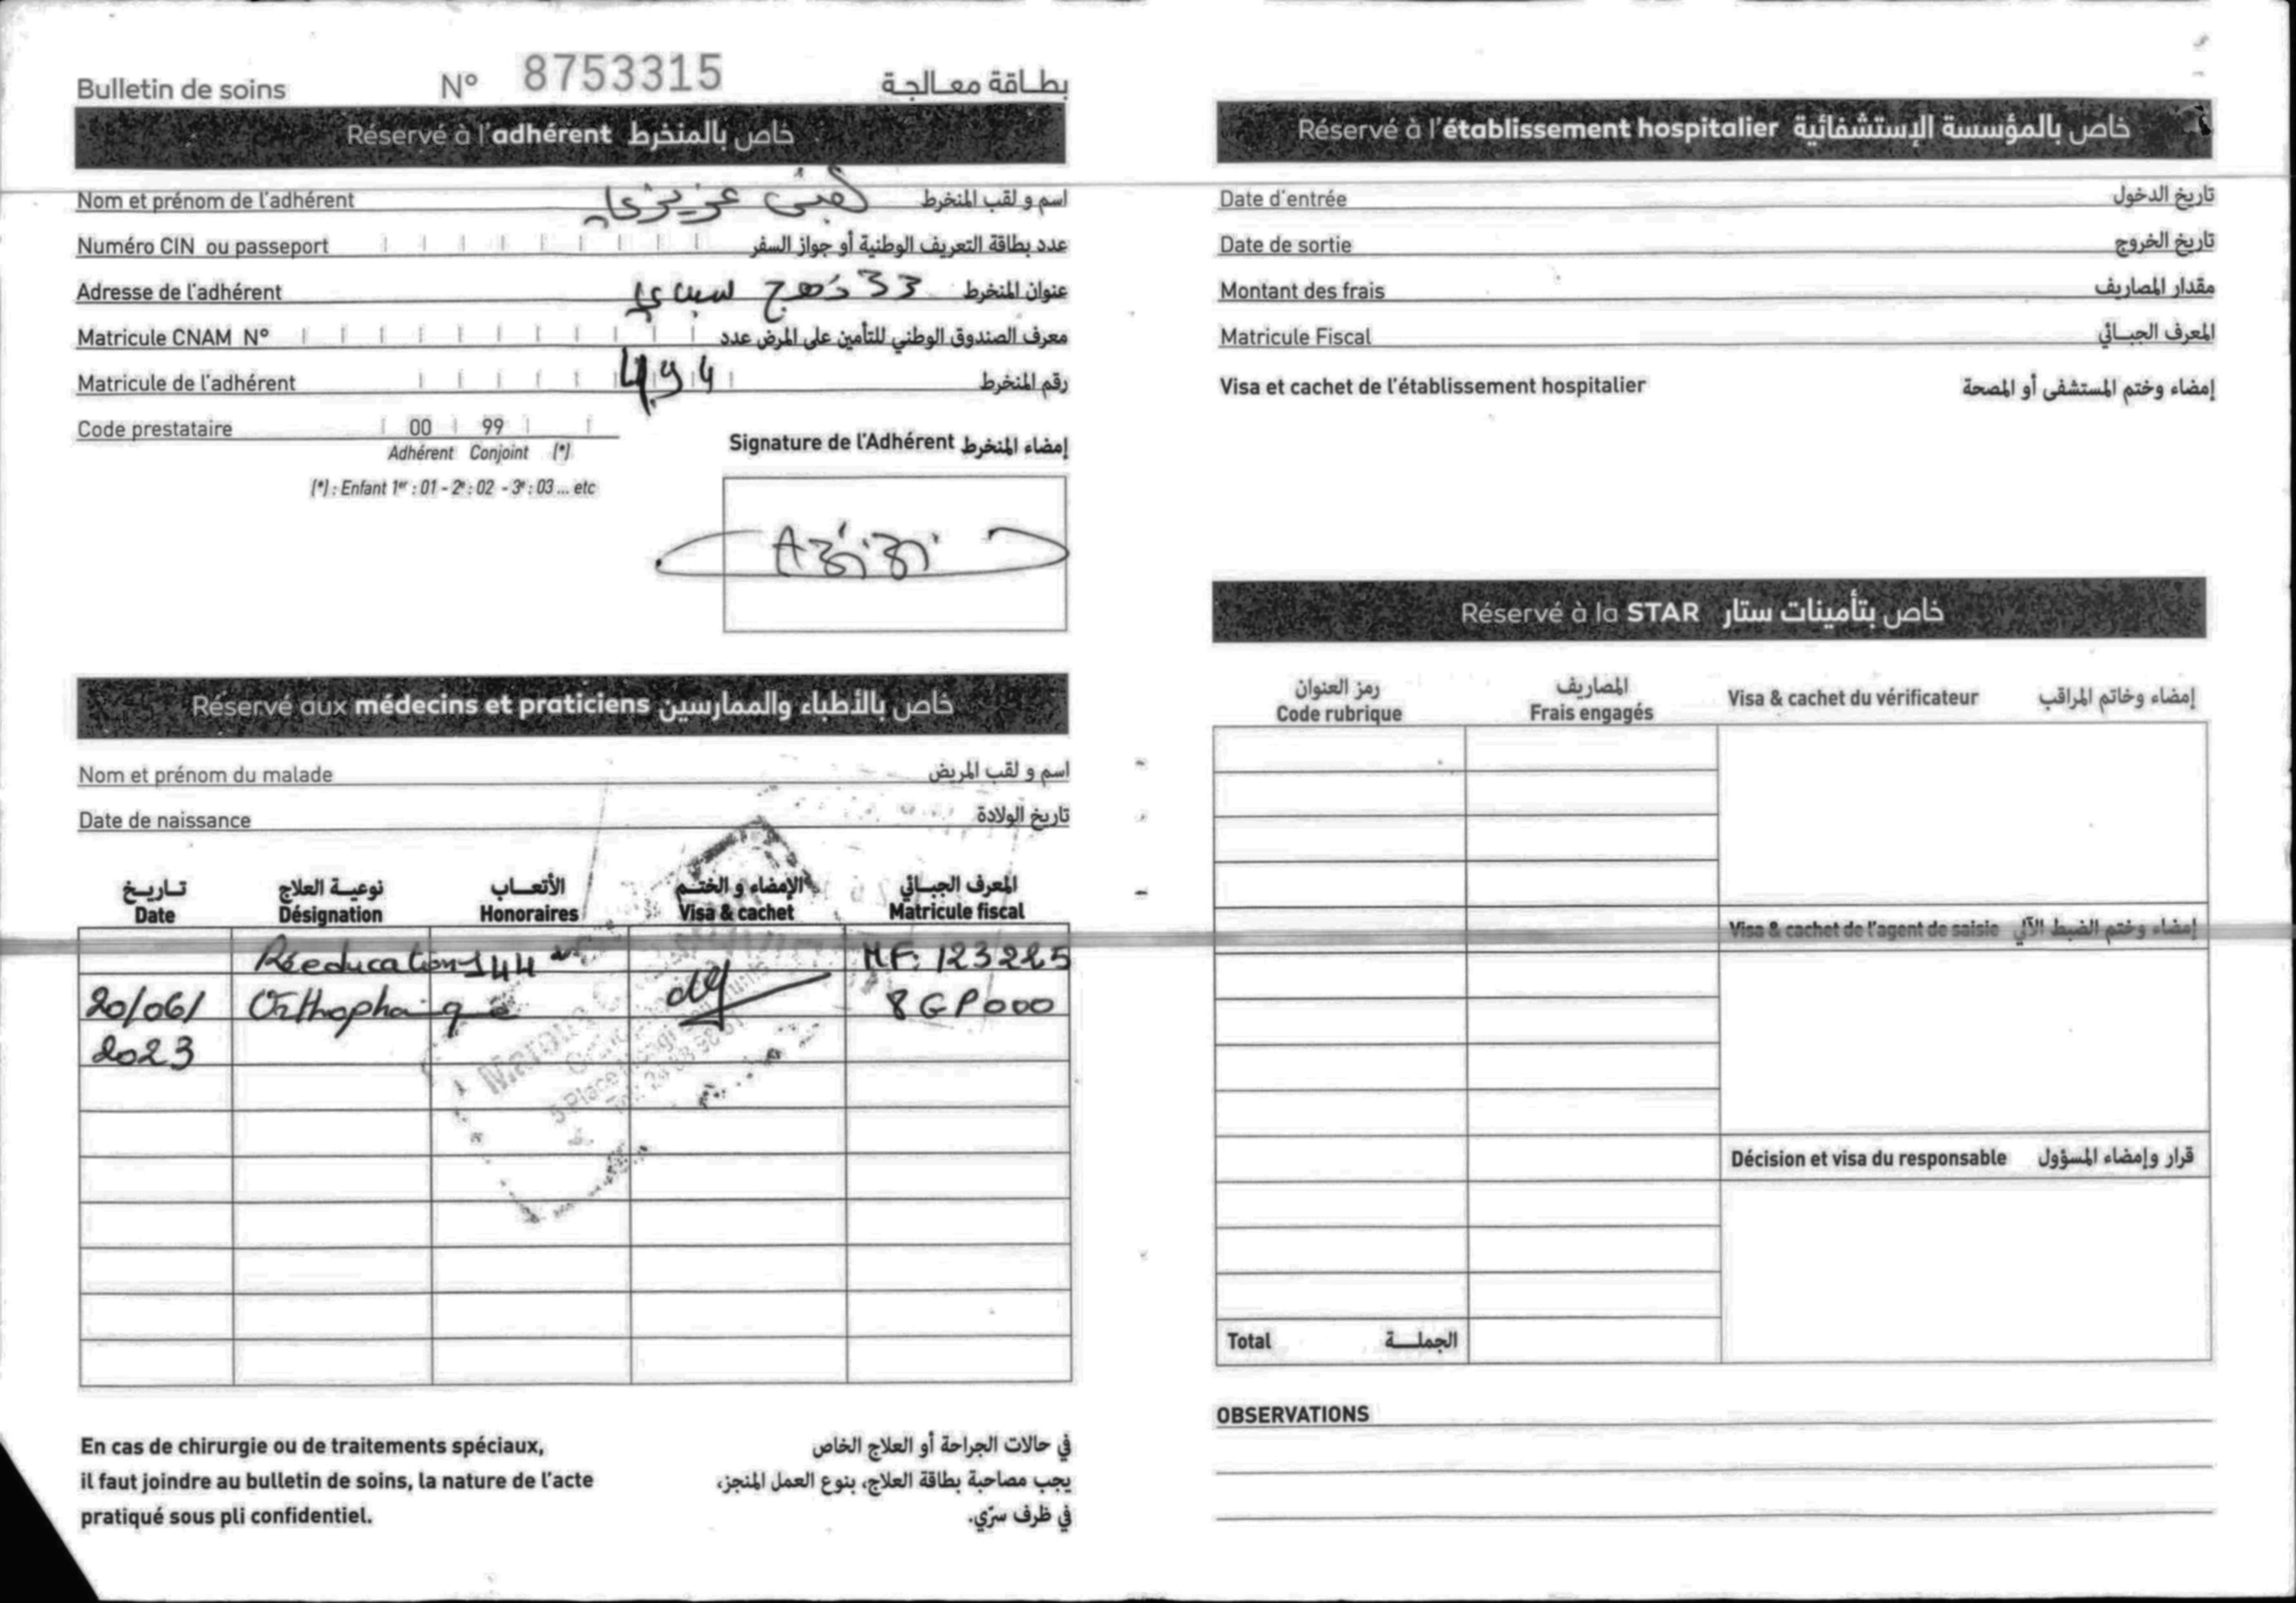 Bulletin de soins N° 8753315 بطاقة معالجة
Réservé à l'adhérent خاص بالمنخرط
Nom et prénom de l'adhérent عزيزي اسم و لقب المنخرط
Numéro CIN ou passeport عدد بطاقة التعريف الوطنية أو جواز السفر
Adresse de l'adhérent 33 نهج عنوان المنخرط
Matricule CNAM N° معرف الصندوق الوطني للتأمين على المرض عدد
Matricule de l'adhérent 494 رقم المنخرط
Code prestataire 00 99
Adhérent Conjoint (*)
(*) : Enfant 1er : 01 - 2e : 02 - 3e : 03 ... etc
Signature de l'Adhérent إمضاء المنخرط
Azizi
Réservé aux médecins et praticiens خاص بالأطباء والممارسين
Nom et prénom du malade اسم و لقب المريض
Date de naissance تاريخ الولادة
تاريخ نوعية العلاج الأتعاب الإمضاء و الختم المعرف الجبائي
Date Désignation Honoraires Visa & cachet Matricule fiscal
Réeducation 144 MF: 123225
20/06/ 8GP000
2023
5 Place
En cas de chirurgie ou de traitements spéciaux,
il faut joindre au bulletin de soins, la nature de l'acte
pratiqué sous pli confidentiel.
في حالات الجراحة أو العلاج الخاص
يجب مصاحبة بطاقة العلاج، بنوع العمل المنجز،
في ظرف سرّي.
Réservé à l'établissement hospitalier خاص بالمؤسسة الإستشفائية
Date d'entrée تاريخ الدخول
Date de sortie تاريخ الخروج
Montant des frais مقدار المصاريف
Matricule Fiscal المعرف الجبائي
Visa et cachet de l'établissement hospitalier إمضاء وختم المستشفى أو المصحة
Réservé à la STAR خاص بتأمينات ستار
رمز العنوان المصاريف
Code rubrique Frais engagés Visa & cachet du vérificateur إمضاء وخاتم المراقب
Visa & cachet de l'agent de saisie إمضاء وختم الضبط الآلي
Décision et visa du responsable قرار وإمضاء المسؤول
Total الجملة
OBSERVATIONS